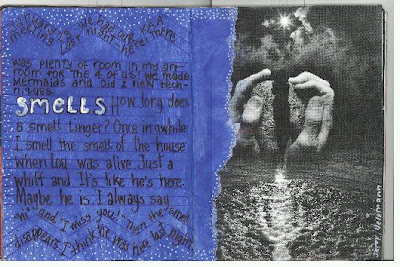 we had our AAA
meeting last night here! There
was plenty of room in my art-
room for the 4 of us! We made
mermaids and did 2 new tech-
niques.
SMELLS How long does
a smell linger? Once in a while
I smell the smell of the house
when was alive. Just a
whiff and It's like he's here.
Maybe he is. I always say
"hi" and "I miss you!" Then the smell
disappears. I think he was here last night.
Jerry Uelsmann